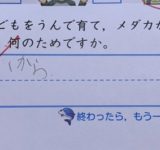 どもをうんで育て，メダカが
何のためですか。
から
終わったら，もう一